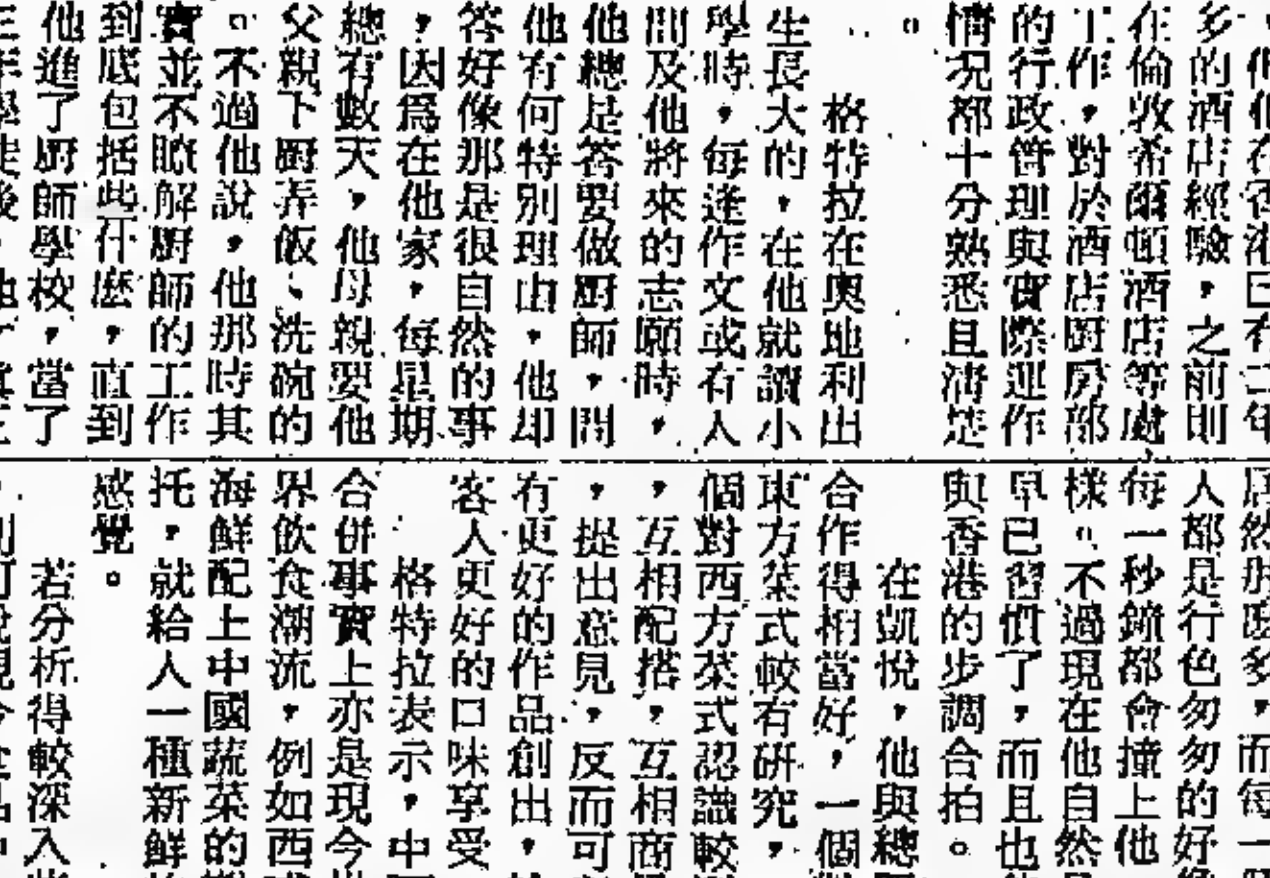 但他在香港已有二年
多的酒店經驗，之前則
在倫敦希爾頓酒店等處
工作，對於酒店厨房部
的行政管理與實際運作
情況都十分熟悉且清楚
。
格特拉在奧地利出
生長大的，在他就讀小
學時，每逢作文或有人
問及他將來的志願時，
他總是答要做厨師，問
他有何特別理由，他却
答好像那是很自然的事
，因爲在他家，每星期
總有數天，他母親要他
父親下厨弄飯、洗碗的
。不過他說，他那時其
實並不瞭解厨師的工作
到底包括些什麽，直到
他進了厨師學校，當了
居然
人都是行色匆匆的好
每一秒鐘都會撞上他
樣。不過現在他自然
早已習慣了，而且也
與香港的步調合拍。
在凱悅，他與總
合作得相當好，一個
東方菜式較有研究，
個對西方菜式認識較
，互相配搭，互相商
，提出意見，反而可
有更好的作品創出，
客人更好的口味享受
格特拉表示，中
合併事實上亦是現今
界飲食潮流，例如西
海鮮配上中國蔬菜的
托，就給人一種新鮮
感覺。
若分析得較深入